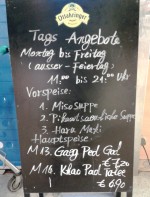 Ottakringer
Tags Angebote
Montag bis Freitag
(ausser - Feiertag)
11:00 bis 21:00 Uhr
Vorspeise:
1. Miso Suppe
2. Pikant sauerliche Suppe
3. Hara Maki
Hauptspeise:
M13. Gaeng Ped Gai
€ 7,20
M16. Khao Pad
€ 6,90